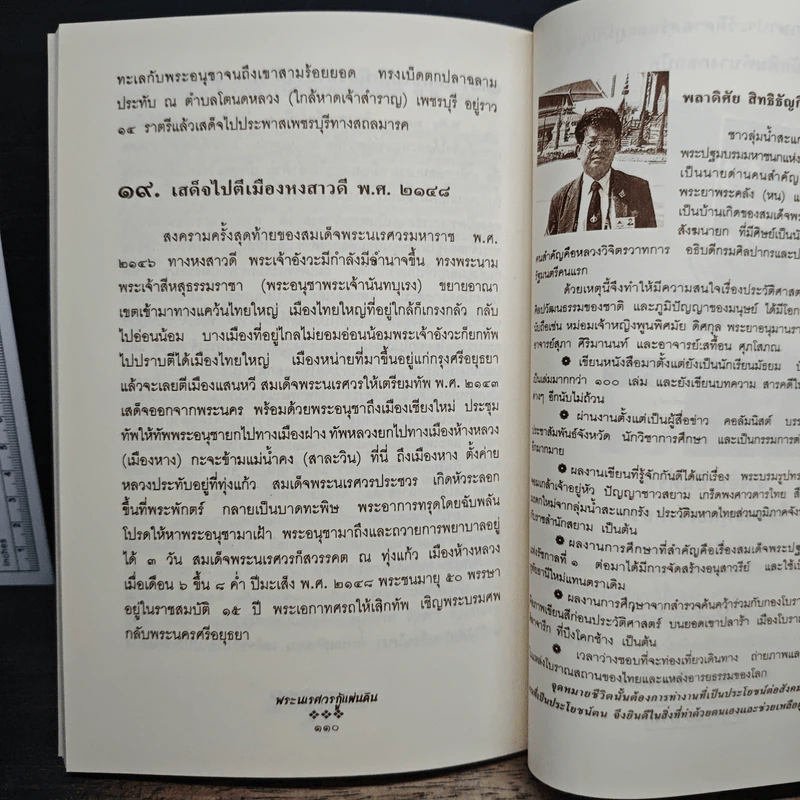 ทะเลกับพระอนุชาจนถึงเขาสามร้อยยอด ทรงเบ็ดตกปลาฉลาม
ประทับ ณ ตำบลโตนดหลวง (ใกล้หาดเจ้าสำราญ) เพชรบุรี อยู่ราว
๑๔ ราตรีแล้วเสด็จไปประพาสเพชรบุรีทางสถลมารค
๑๙. เสด็จไปตีเมืองหงสาวดี พ.ศ. ๒๑๔๘
สงครามครั้งสุดท้ายของสมเด็จพระนเรศวรมหาราช พ.ศ.
๒๑๔๖ ทางหงสาวดี พระเจ้าอังวะมีกำลังมีอำนาจขึ้น ทรงพระนาม
พระเจ้าสีหสุธรรมราชา (พระอนุชาพระเจ้านันทบุเรง) ขยายอาณา
เขตเข้ามาทางแคว้นไทยใหญ่ เมืองไทยใหญ่ที่อยู่ใกล้ก็เกรงกลัว กลับ
ไปอ่อนน้อม บางเมืองที่อยู่ไกลไม่ยอมอ่อนน้อมพระเจ้าอังวะก็ยกทัพ
ไปปราบตีได้เมืองไทยใหญ่ เมืองหน่ายที่มาขึ้นอยู่แก่กรุงศรีอยุธยา
แล้วจะเลยตีเมืองแสนหวี สมเด็จพระนเรศวรให้เตรียมทัพ พ.ศ. ๒๑๔๓
เสด็จออกจากพระนคร พร้อมด้วยพระอนุชาถึงเมืองเชียงใหม่ ประชุม
ทัพให้ทัพพระอนุชายกไปทางเมืองฝาง ทัพหลวงยกไปทางเมืองห้างหลวง
(เมืองหาง) กะจะข้ามแม่น้ำคง (สาละวิน) ที่นี่ ถึงเมืองหาง ตั้งค่าย
หลวงประทับอยู่ที่ทุ่งแก้ว สมเด็จพระนเรศวรประชวร เกิดหัวระลอก
ขึ้นที่พระพักตร์ กลายเป็นบาดทะพิษ พระอาการทรุดโดยฉับพลัน
โปรดให้หาพระอนุชามาเฝ้า พระอนุชามาถึงและถวายการพยาบาลอยู่
ได้ ๓ วัน สมเด็จพระนเรศวรก็สวรรคต ณ ทุ่งแก้ว เมืองห้างหลวง
เมื่อเดือน ๖ ขึ้น ๘ ค่ำ ปีมะเส็ง พ.ศ. ๒๑๔๘ พระชนมายุ ๕๐ พรรษา
อยู่ในราชสมบัติ ๑๕ ปี พระเอกาทศรถให้เลิกทัพ เชิญพระบรมศพ
กลับพระนครศรีอยุธยา
พระนเรศวรกู้แผ่นดิน
๑๑๐
พลาดิศัย สิทธิธัญกิ
ชาวลุ่มน้ำสะแก
พระปฐมบรมมหาชนกแห่ง
เป็นนายด่านคนสำคัญ
พระยาพระคลัง (หน) แ
เป็นบ้านเกิดของสมเด็จพร
สังฆนายก ที่มีศิษย์เป็นนั
คนสำคัญคือหลวงวิจิตรวาทการ อธิบดีกรมศิลปากรและป
รัฐมนตรีคนแรก
ด้วยเหตุนี้จึงทำให้มีความสนใจเรื่องประวัติศาสต
ศิลปวัฒนธรรมของชาติ และภูมิปัญญาของมนุษย์ ได้มีโอก
นับถือเช่น หม่อมเจ้าหญิงพูนพิศมัย ดิศกุล พระยาอนุมานรา
อาจารย์สุภา ศิริมานนท์ และอาจารย์เสทื้อน ศุภโสภณ
เขียนหนังสือมาตั้งแต่ยังเป็นนักเรียนมัธยม
เป็นเล่มมากกว่า ๑๐๐ เล่ม และยังเขียนบทความ สารคดีใน
ต่างๆ อีกนับไม่ถ้วน
ผ่านงานตั้งแต่เป็นผู้สื่อข่าว คอลัมนิสต์ บรร
ประชาสัมพันธ์จังหวัด นักวิชาการศึกษา และเป็นกรรมการต่
ผลงานเขียนที่รู้จักกันดีได้แก่เรื่อง พระบรมรูปทร
เกล้าเจ้าอยู่หัว ปัญญาชาวสยาม เกร็ดพงศาวดารไทย สี
ใหม่จากลุ่มน้ำสะแกกรัง ประวัติมหาดไทยส่วนภูมิภาคจังห
ราชสำนักสยาม เป็นต้น
ผลงานการศึกษาที่สำคัญคือเรื่องสมเด็จพระปฐม
รัชกาลที่ ๑ ต่อมาได้มีการจัดสร้างอนุสาวรีย์ และใช้เป็
ใหม่แทนตราเดิม
ผลงานการศึกษาจากสำรวจค้นคว้าร่วมกับกองโบรา
ภาพเขียนสีก่อนประวัติศาสตร์ บนยอดเขาปลาร้า เมืองโบรา
จารึก ที่บึงโคกช้าง เป็นต้น
เวลาว่างชอบที่จะท่องเที่ยวเดินทาง ถ่ายภาพและ
แหล่งโบราณสถานของไทยและแหล่งอารยธรรมของโลก
จุดหมายชีวิตนั้นต้องการทำงานที่เป็นประโยชน์ต่อสังคม
เป็นประโยชน์ตน จึงยินดีในสิ่งที่ทำด้วยตนเองและช่วยเหลือผู้
inches